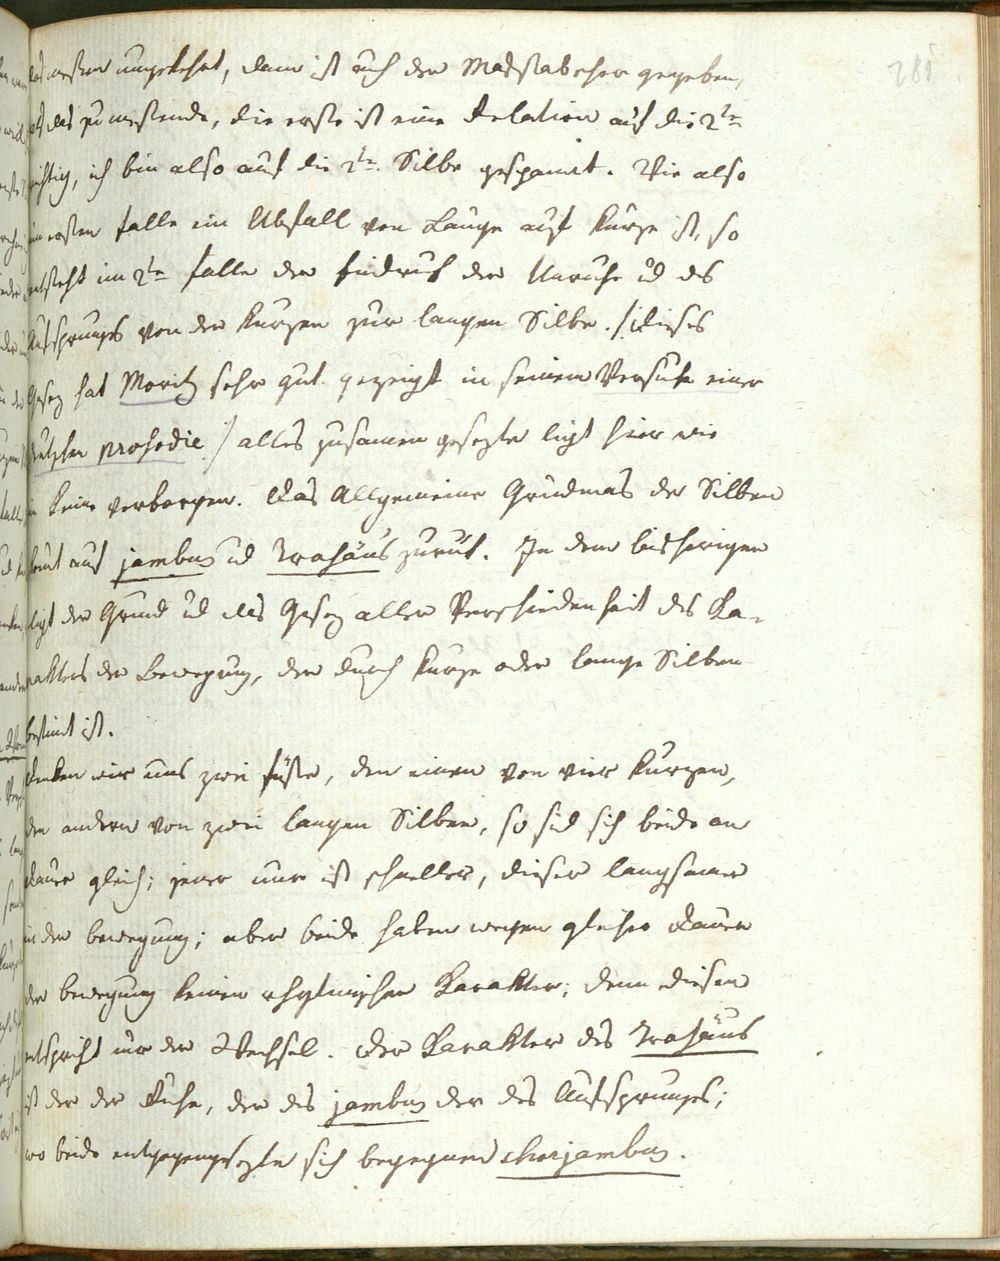 281
das messen umgekehrt, dann ist auch der Masstab eher gegeben,
als das zu messende, die erste ist eine Relation auf die 2te
richtig, ich bin also auf die 2te Silbe gespannt. Wie also
im ersten Falle ein Abfall von Länge auf Kürze ist, so
entsteht im 2te Falle der Eindruk der Unruhe ud des
Aufsprungs von der kurzen zur langen Silbe. /:Dieses
Gesez hat Moritz sehr gut gezeigt in seinem Versuche einer
deutschen prosodie/ alles zusamen gesezte ligt hier wie
im Keime verborgen. Das Allgemeine Grundmas der Silben
komt auf jambus ud Trochäus zurük. In dem bisherigen
ligt der Grund ud das Gesez aller Verschiedenheit des Ka-
rakters der Bewegung, der durch kurze oder lange Silben
bestimt ist.
Denken wir uns zwei Füsse, den einen von vier kurzen,
den andern von zwei langen Silben, so sid sich beide an
Dauer gleich; jener nur ist schneller, dieser langsamer
in der bewegung; aber beide haben wegen gleicher Dauer
der bewegung keinen rhytmischen Karakter; denn diesem
entspricht nur der Wechsel. Der Karakter des Trochäus
ist der der Ruhe, der des jambus der des Aufsprunges;
wo beide entgegengesezte sich begegnen choriambus.